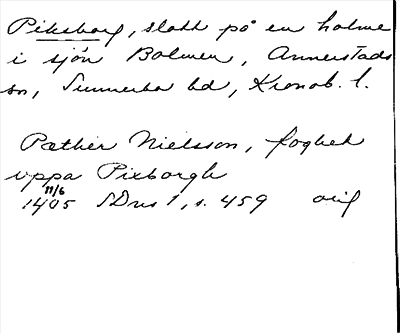 Piksborg, slott på en holme
i sjön Bolmen, Annerstads
sn, Sunnerbo hd, Kronob. l.
Pæther Nielsson, foghet
uppa Pixborgh
11/6
1405 SDns 1, s. 459 orig